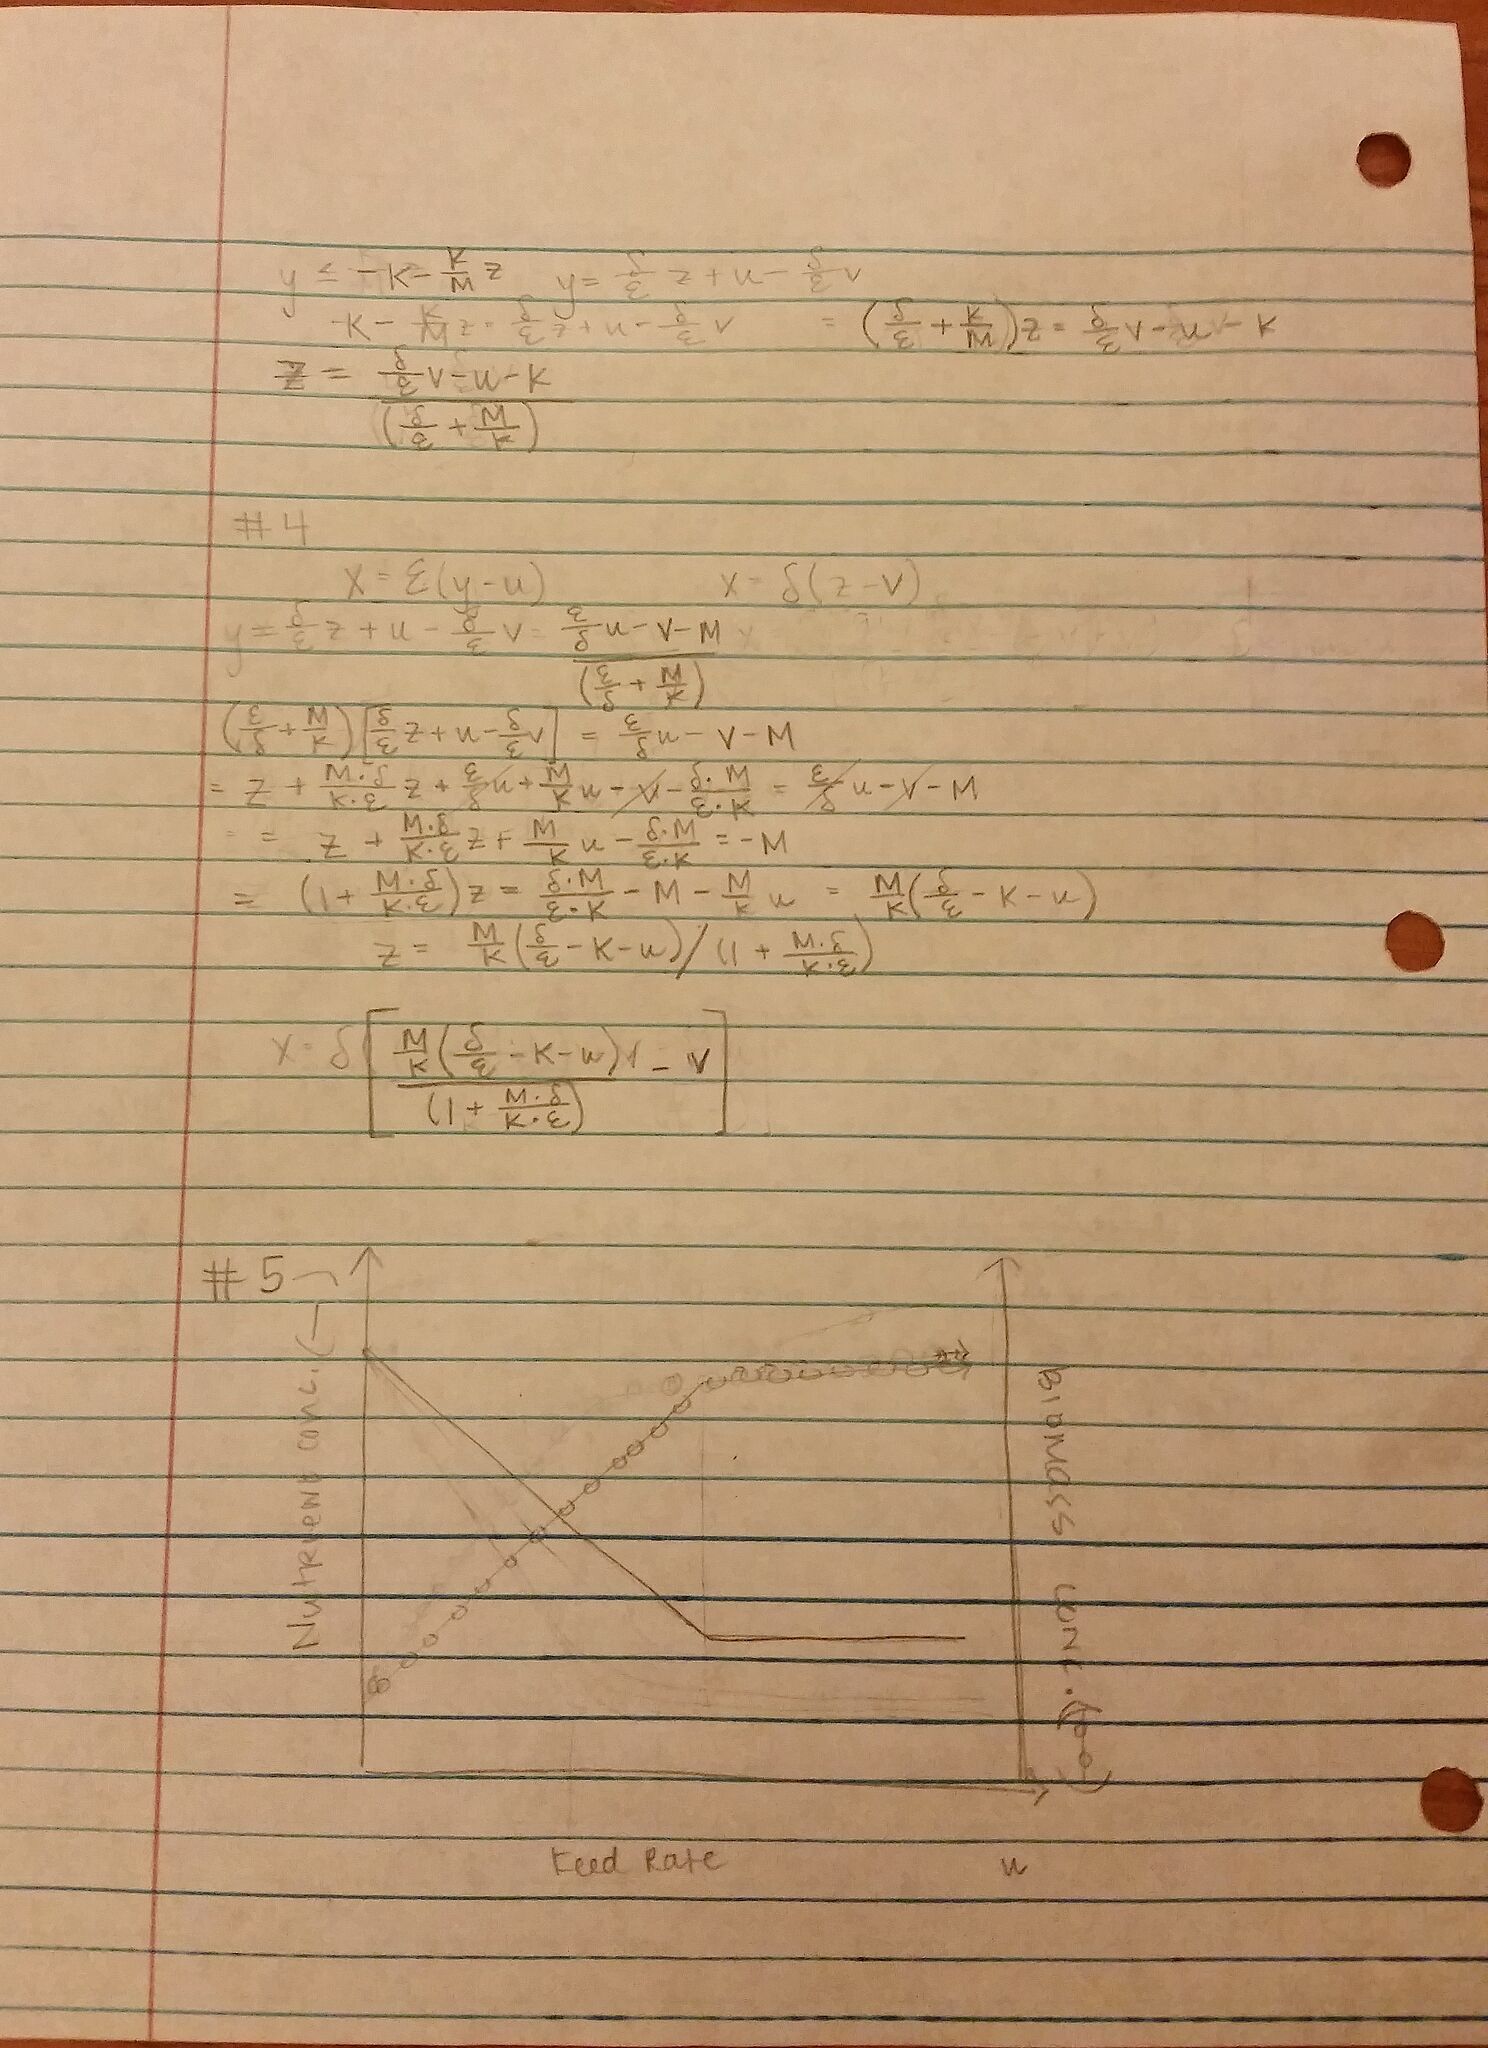 y = -K - K/M z   y = δ/ε z + u - δ/ε v
-K - K/M z = δ/ε z + u - δ/ε v   = (δ/ε + K/M) z = δ/ε v - u - K
z = (δ/ε v - u - K) / (δ/ε + M/K)
#4
X = ε(y - u)   X = δ(z - v)
y = δ/ε z + u - δ/ε v = (ε/δ u - v - M) / (ε/δ + M/K)
(ε/δ + M/K)[δ/ε z + u - δ/ε v] = ε/δ u - v - M
= z + M·δ/K·ε z + ε/δ u + M/K u - v - δ·M/ε·K = ε/δ u - v - M
= = z + M·δ/K·ε z + M/K u - δ·M/ε·K = -M
= (1 + M·δ/K·ε) z = δ·M/ε·K - M - M/K u = M/K (δ/ε - K - u)
z = M/K (δ/ε - K - u) / (1 + M·δ/K·ε)
X = δ[M/K (δ/ε - K - u) / (1 + M·δ/K·ε) - v]
#5
Nutrient conc. (—)
Biomass conc.
Feed Rate   u